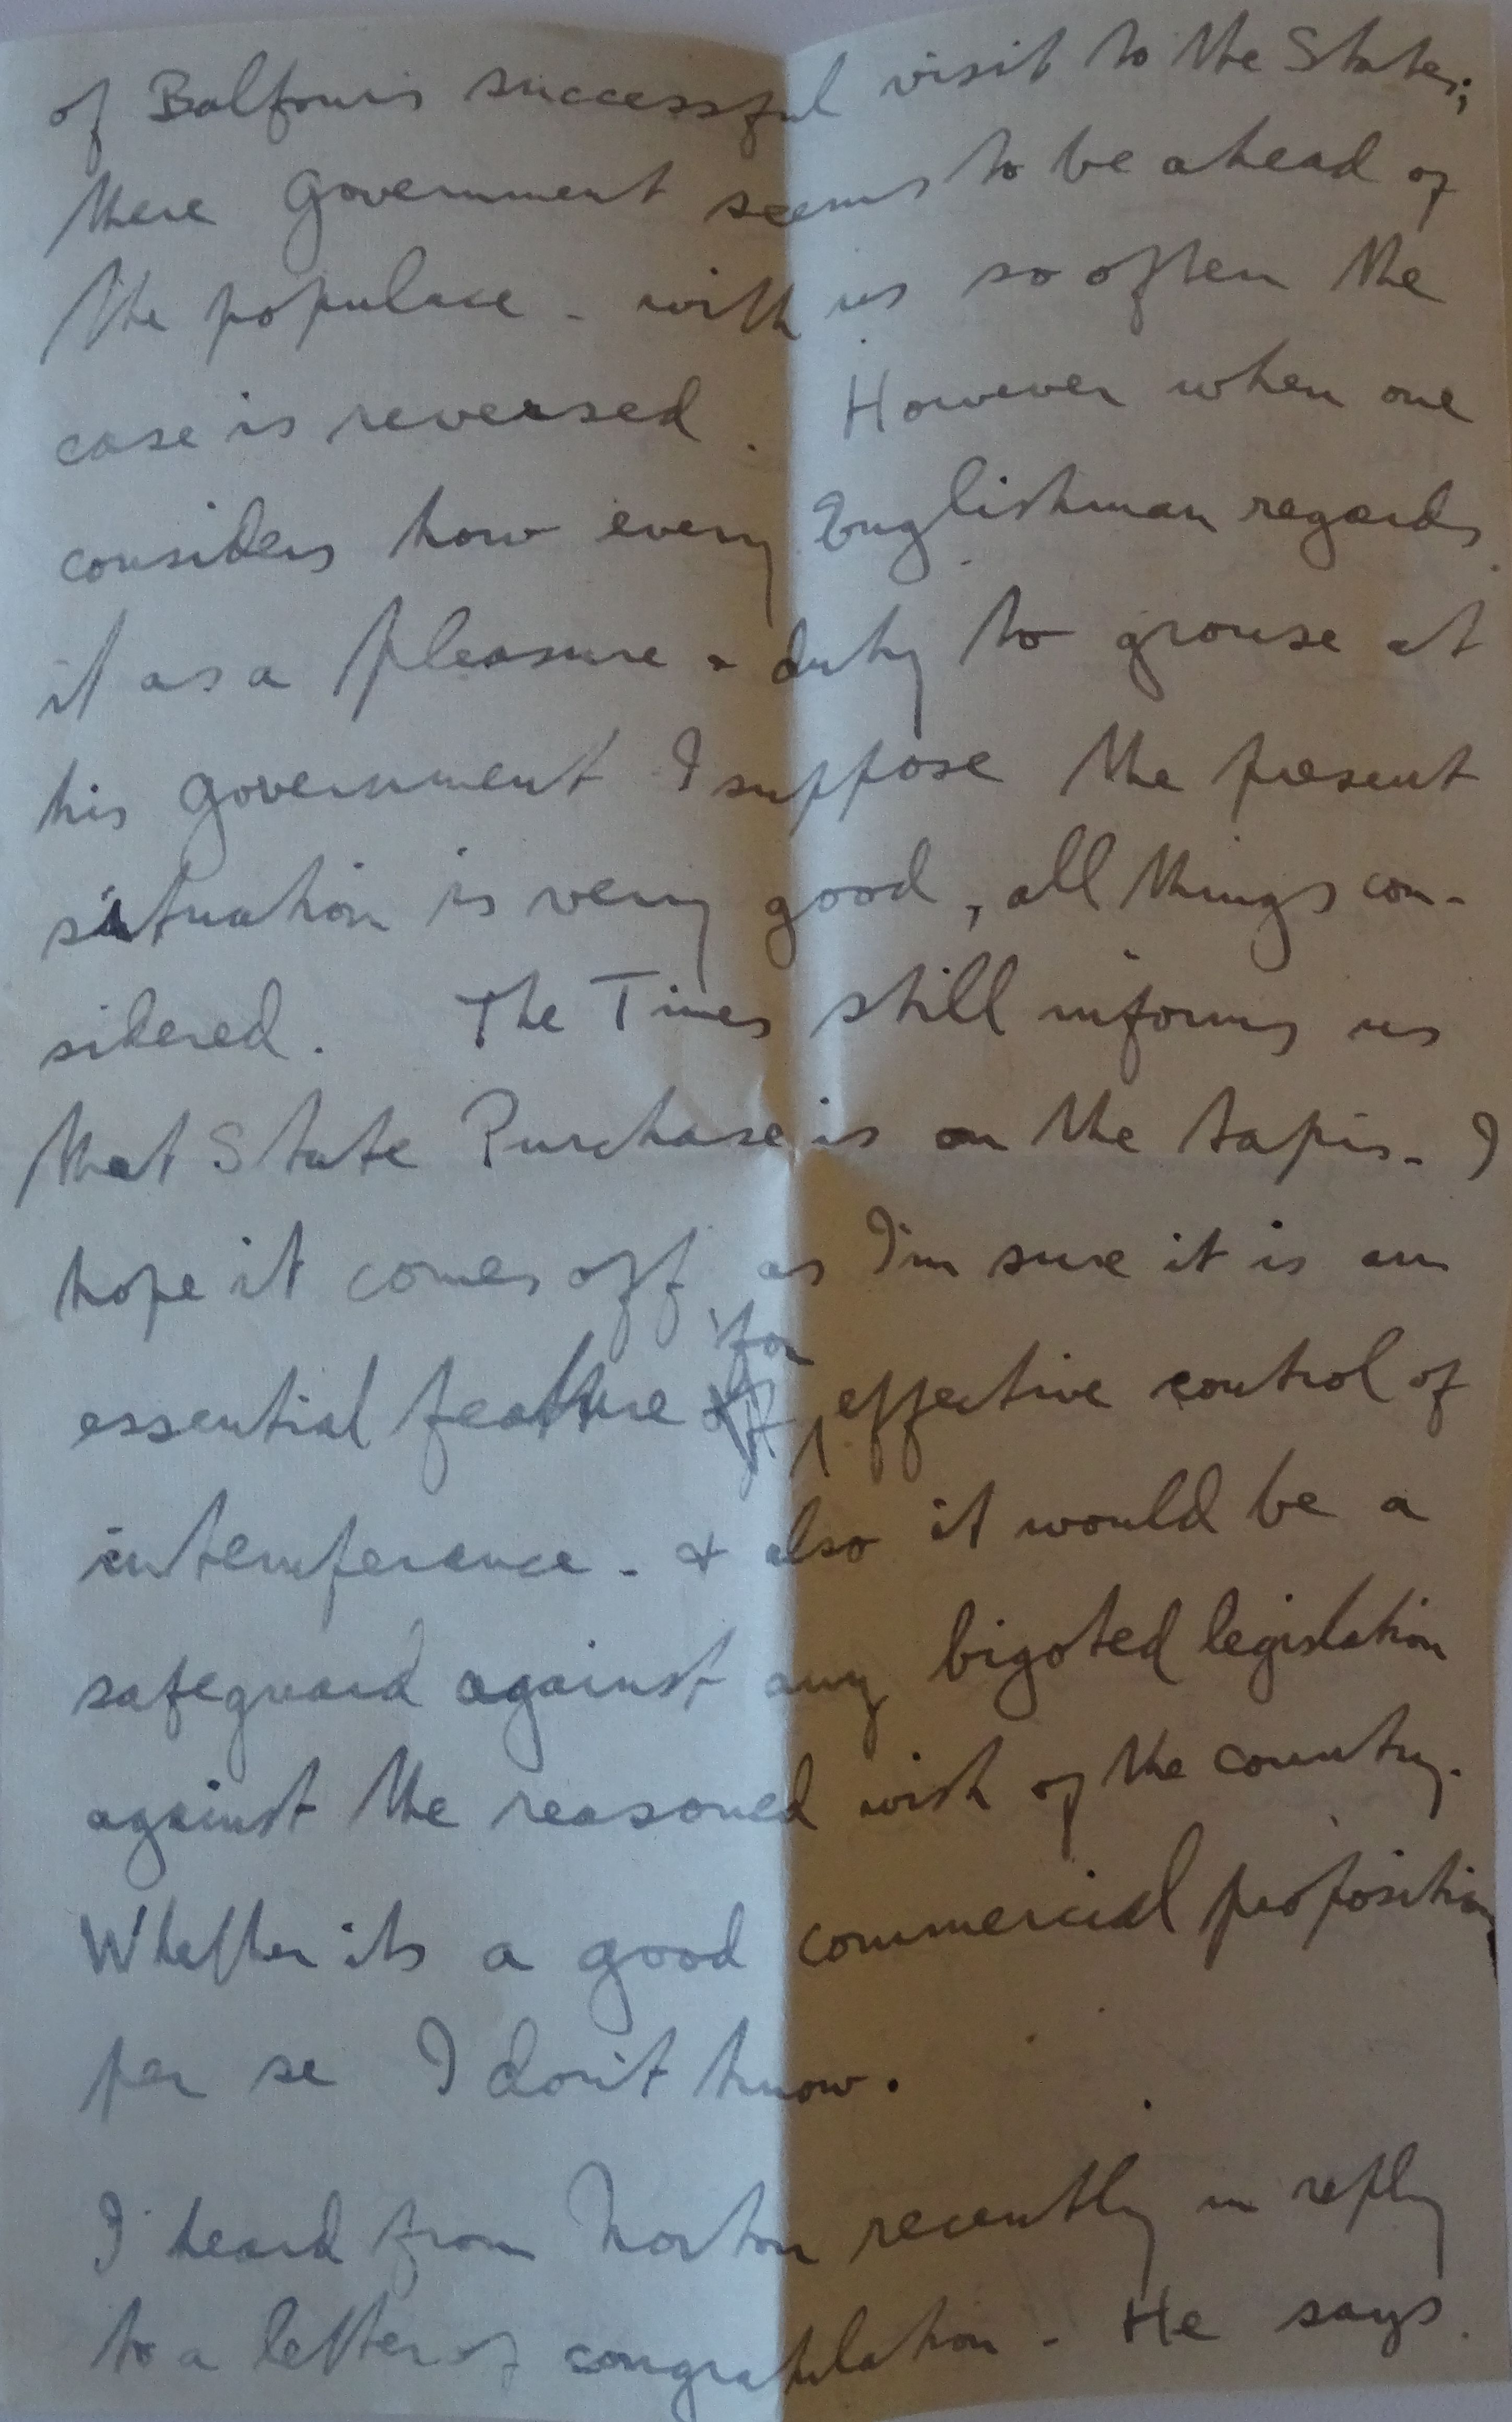 of Balfour's successful visit to the States;
there Government seems to be ahead of
the populace - with us so often the
case is reversed. However when one
considers how every Englishman regards
it as a pleasure & duty to grouse at
his Government I suppose the present
situation is very good, all things con-
sidered. The Times still informs us
that State Purchase is on the tapis. I
hope it comes off as I'm sure it is an
for
essential feature of effective control of
intemperance - & also it would be a
safeguard against any bigoted legislation
against the reasoned wish of the country.
Whether its a good commercial proposition,
per se I don't know.
I heard from Norton recently in reply
to a letter of congratulation - He says